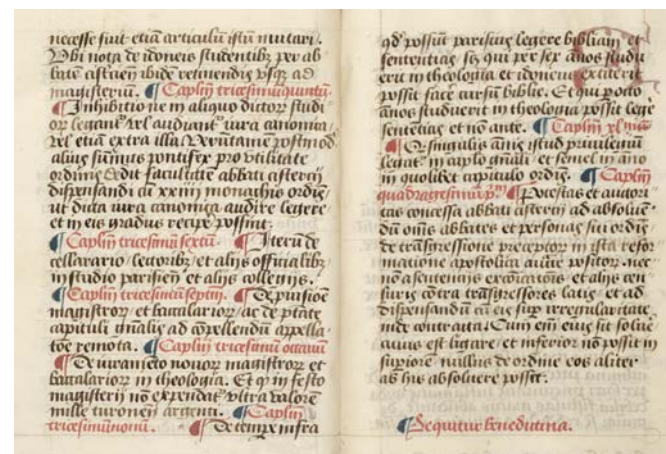 necesse fuit etiā articulū istū mutari.
Vbi nota de idoneis studentibꝫ per ab
batē cisterciēn ibidē retinendis vsqꝫ ad
magisteriū. ¶ Caplm̄ tricesimūquintū.
¶ Inhibitio ne in aliquo dictoꝝ studi
oꝝ legant᷑ vel audiant᷑ iura canonica
vel etiā extra illa. Veruntamē postmod
alius sūmus pontifex pro vtilitate
ordinis dedit facultatē abbati cistercij
dispensandi cū xxiiij monachis ordīs
ut dicta iura canonica audire legere
et in eis gradus recipe possint.
¶ Caplm̄ tricesimū sextū. ¶ Iterū de
cellarario, lectoribꝫ et alijs officialibꝫ
in studio parisień et alijs collegijs.
¶ Caplm̄ tricesimū septīm. ¶ De p̱uisioē
magistroꝝ et baccalarioꝝ, ac de p̱tate
capituli gn̄alis ad cōpellendū appella
tōe remota. ¶ Caplm̄ tricesimū octauū
¶ De iuramēto nouoꝝ magistroꝝ et
baccalarioꝝ in theologia. Et qꝫ in festo
magisterij nō expendat᷑ vltra valorē
mille turoneń argenti. ¶ Caplm̄
tricesimūnonū. ¶ De tempe infra
qd̄ possūt parisius legere bibliam et
sententias sꝫ qui per sex ānos studu
erit in theologia et idoneus extiterit
possit facē cursū biblie. Et qui p octo
ānos studuerit in theologia possit legē
sentētias et nō ante. ¶ Caplm̄ xlmū
¶ Qꝫ singulis ānis istud priuilegiū
legat᷑ in caplo gn̄ali, et semel in āno
in quolibet capitulo ordīs. ¶ Caplm̄
quadragesimūp̄ᵐ. ¶ Potestas et auctori
tas concessa abbati cistercij ad absoluē
dū oīms abbates et personas sui ordīs
de trāsgressione preceptoꝝ in ista refor
matione apostolica auctē positoꝝ. nec
nō a sentencijs excōīcatōīs et alijs cen
suris cōtra trāsgressores latis, et ad
dispensandū cū eis sup irregularitate
inde contracta. Cum em̄ eius sit soluē
cuius est ligare, et inferior nō possit in
supiorē, nullus de ordine eos aliter
ab his absoluere possit.
¶ Sequitur benedictina.